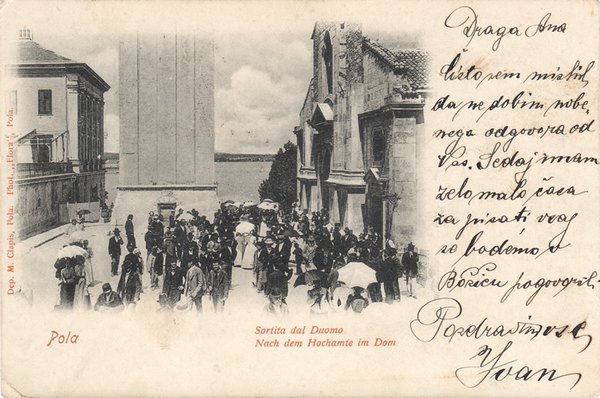 Draga Ana
čisto sem mislil,
da ne dobim nobe-
nega odgovora od
Vas. Sedaj imam
zelo malo časa
za pisati vsaj
se bodemo o
Božiču pogovorili.
Pozdravimo se
Ivan
Dep. M. Clapis, Pola. Phot. „Flora" Pola.
Pola
Sortita dal Duomo
Nach dem Hochamte im Dom